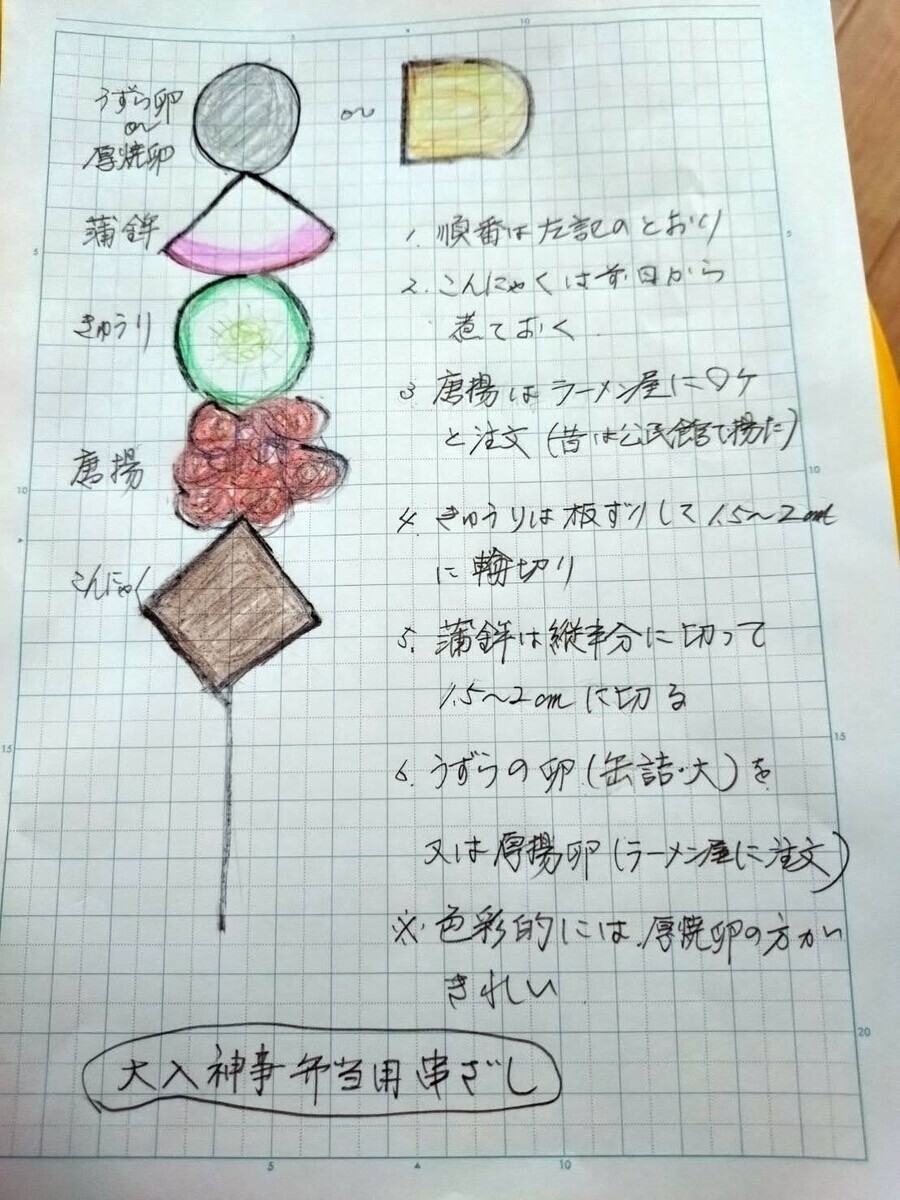 うずら卵
or
厚焼卵
or
蒲鉾
きゅうり
唐揚
こんにゃく
1. 順番は左記のとおり
2. こんにゃくは前日から
煮ておく
3 唐揚はラーメン屋に○ケ
と注文(昔は公民館で揚た)
4 きゅうりは板ずりして1.5〜2cm
に輪切り
5. 蒲鉾は縦半分に切って
1.5〜2cmに切る
6. うずらの卵(缶詰・大)を
又は厚揚卵(ラーメン屋に注文)
※ 色彩的には、厚焼卵の方がい
きれい
大入神事弁当用串ざし
5
10
5
5
10
10
15
15
20
5
10